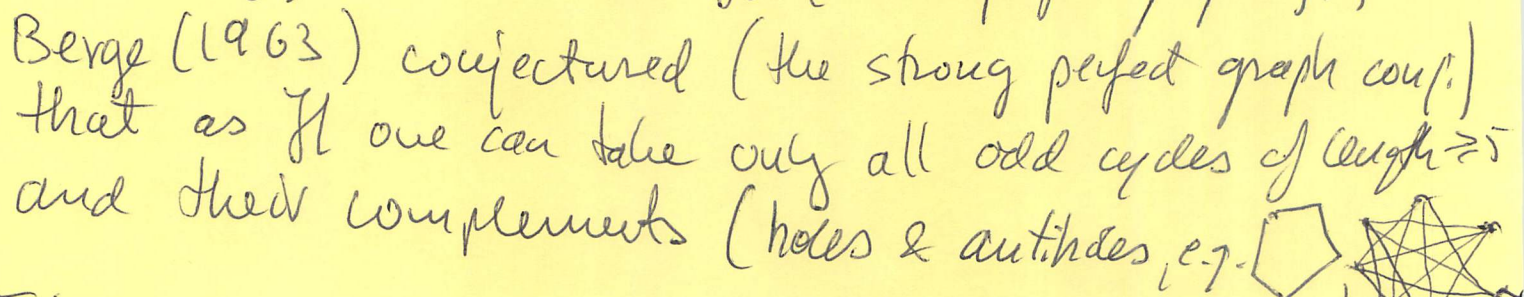 Berge (1963) conjectured (the strong perfect graph conj.)
that as ℋ one can take only all odd cycles of length ≥5
and their complements (holes & antiholes, e.g.